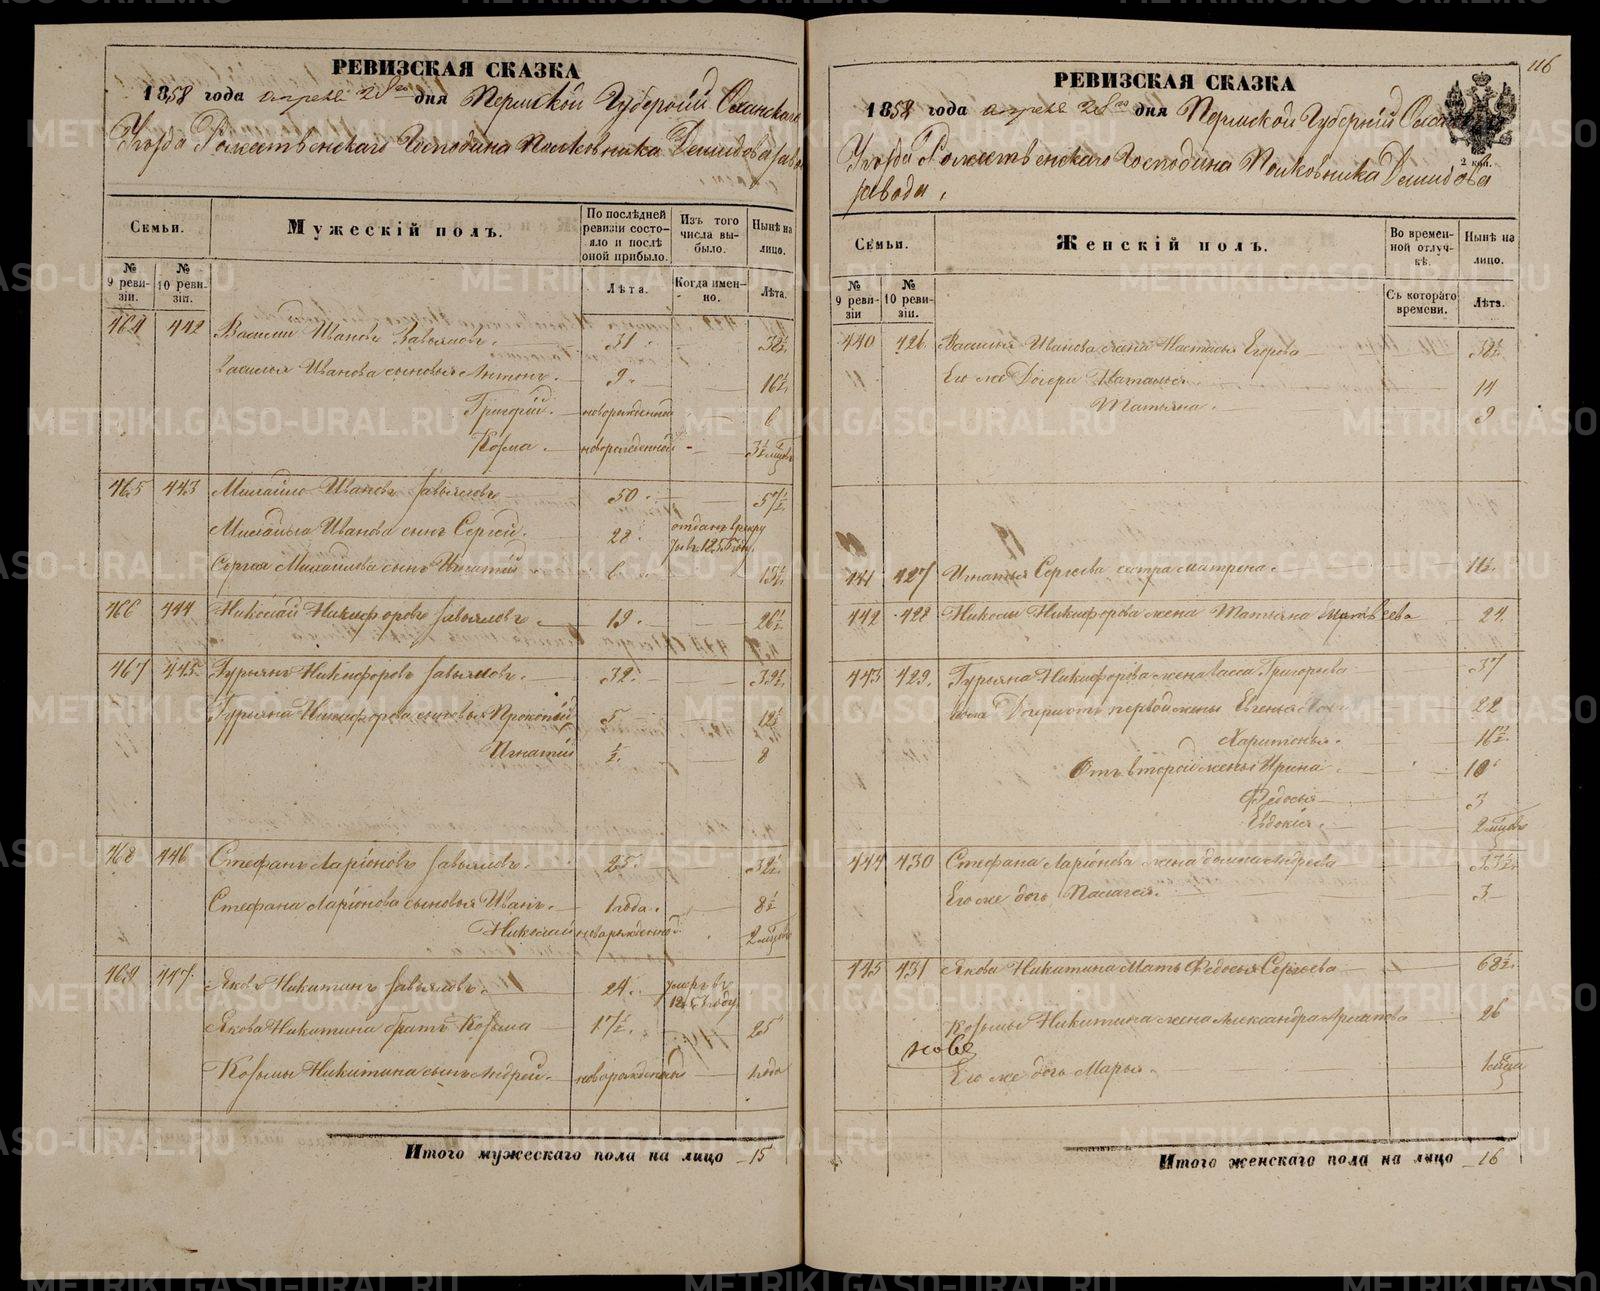 РЕВИЗСКАЯ СКАЗКА
1858 года апреля 28го дня Пермской Губерніи Оханскаго
Уезда Рожественскаго Господина Полковника Демидова завода
Семьи.
Мужескій полъ.
По послѣдней ревизіи состояло и послѣ оной прибыло.
Изъ того числа выбыло.
Нынѣ на лицо.
№ 9 ревизіи.
№ 10 ревизіи.
Лѣта.
Когда именно.
Лѣта.
464 442 Василій Ивановъ Завьяловъ. 31. 38½
Василья Иванова сыновья Антонъ. 9. 16½
Григорій. новорожденной 6
Козма. новорожденной 3½ мѣсяц
465 443 Михайло Ивановъ Завьяловъ 50. 57½
Михайла Иванова сынъ Сергей. 28. отданъ в рекруты въ 1855 году.
Сергея Михайлова сынъ Игнатій 6 13½
466 444 Николай Никифоровъ Завьяловъ. 19. 26½
467 445 Гурьянъ Никифоровъ Завьяловъ. 32. 39½
Гурьяна Никифорова сыновья Прокопій 5 12½
Игнатій ½. 8
468 446 Стефанъ Ларіоновъ Завьяловъ. 25. 32½
Стефана Ларіонова сыновья Иванъ. 1 года. 8½
Николай новорожденной 2 мѣсяц
469 447 Яковъ Никитинъ Завьяловъ. 24. умеръ въ 1857 году
Якова Никитина братъ Козьма 17½ 25
Козьмы Никитина сынъ Андрей. новорожденн 1 года
Итого мужескаго пола на лицо 15
116
РЕВИЗСКАЯ СКАЗКА
1858 года апреля 28го дня Пермской Губерніи Оханскаго
Уезда Рожественскаго Господина Полковника Демидова
завода.
2 коп.
Семьи.
Женскій полъ.
Во временной отлучкѣ.
Нынѣ на лицо.
№ 9 ревизіи
№ 10 ревизіи.
Съ котораго времени.
Лѣта.
440 426 Василья Иванова жена Настасья Егорова 38½
Его же Дочери Наталья 14
Татьяна. 9
441 427 Игнатья Сергеева сестра Матрена. 11½
442 428 Николая Никифорова жена Татьяна Матвеева 24
443 429. Гурьяна Никифорова жена Васса Григорьева 37
Дочери отъ первой жены Евгенья 22
Харитонья. 16½
Отъ второй жены Ирина 10
Федосья 3
Евдокія. 2 мѣсяц
444 430 Стефана Ларіонова жена Домна Андреева 33½
Его же дочь Палагея. 3
445 431 Якова Никитина Мать Федосья Сергеева 68½
Козьмы Никитина жена Александра Архипова 26
нове
Его же дочь Марья.
Итого женскаго пола на лицо 16
METRIKI.GASO-URAL.RU